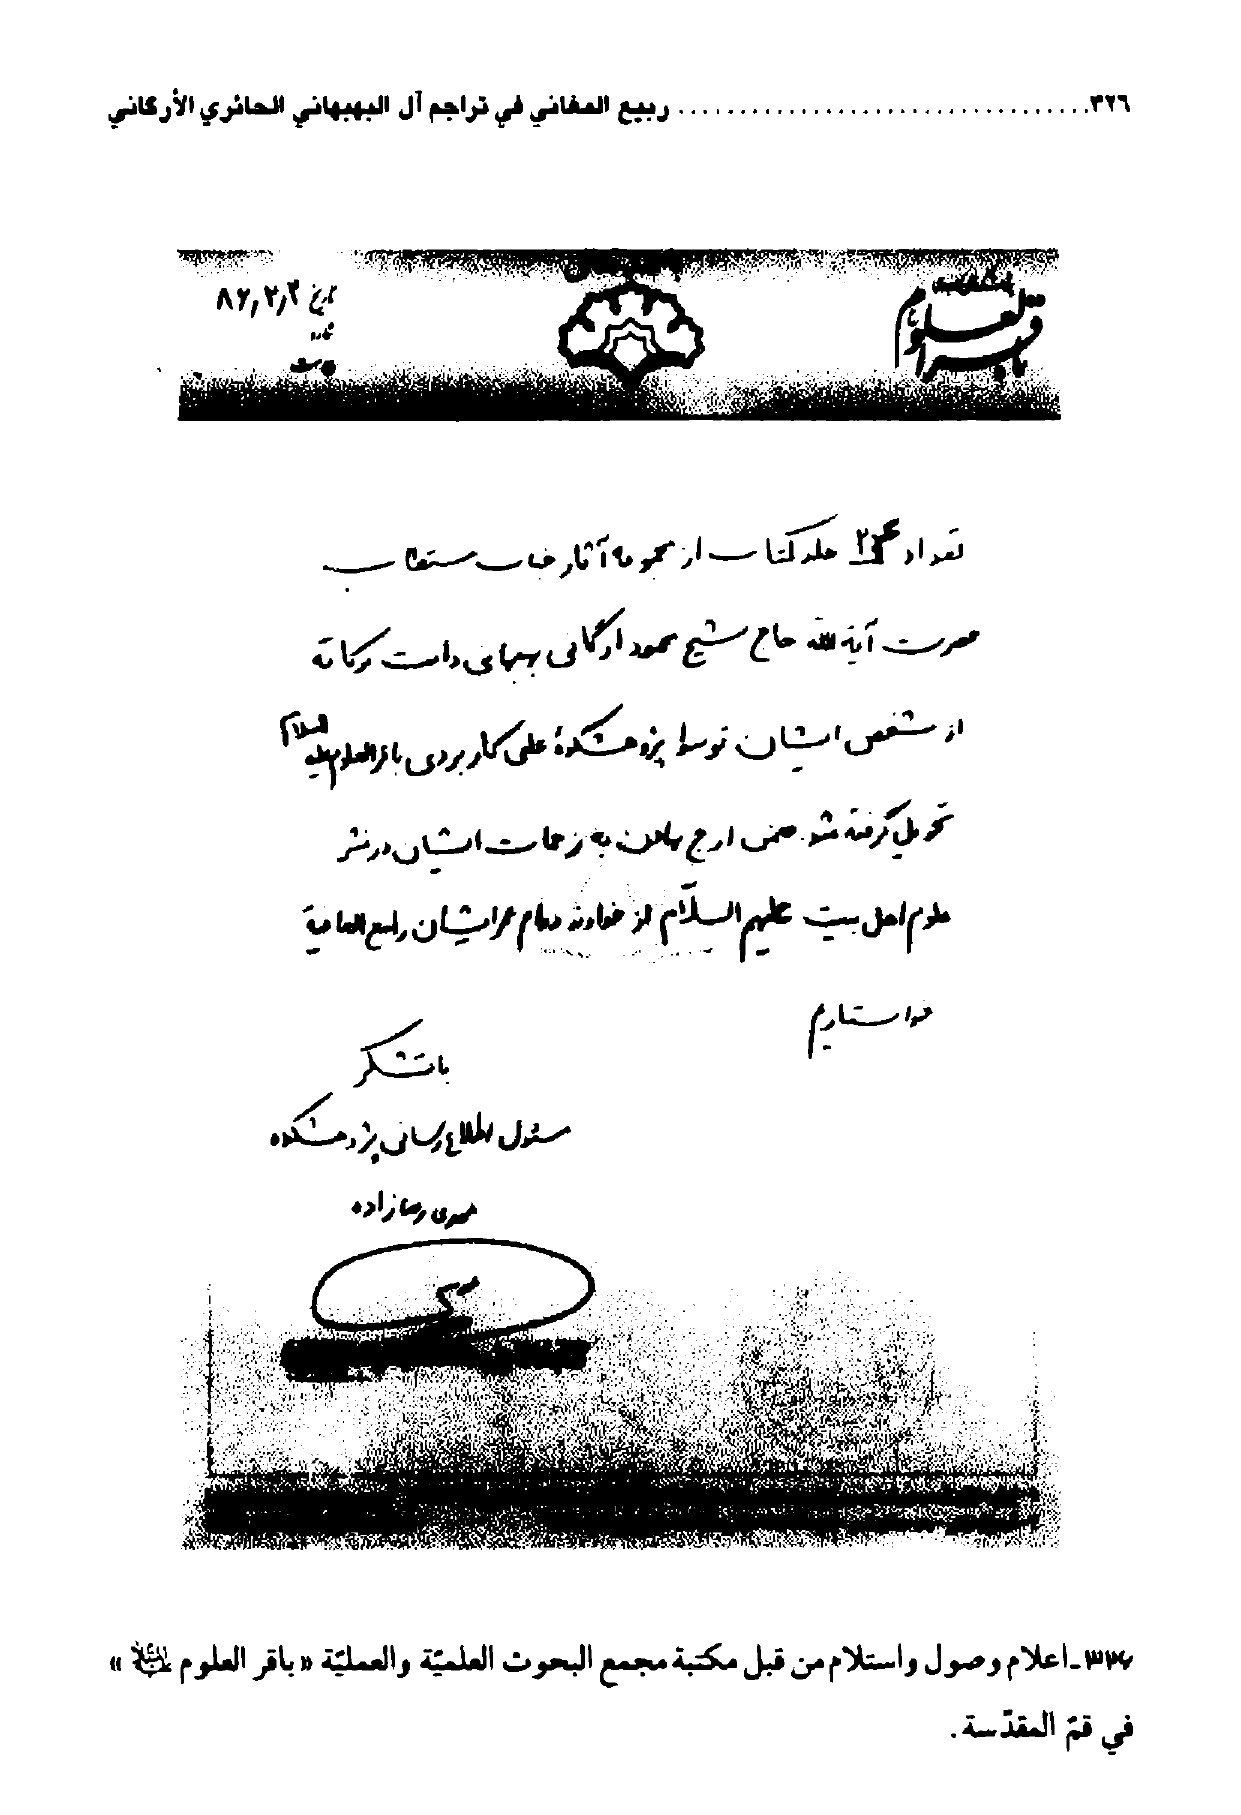 ٣٢٦ ................................ ربيع المغاني في تراجم آل البهبهاني الحائري الأركاني
باقرالعلوم
تاریخ ۸۷٫۲٫۲
شماره
پیوست
تعداد ۲۴ جلد کتاب از مجموعه آثار جناب مستطاب
حضرت آیة الله حاج شیخ محمود ارگانی بهبهانی دامت برکاته
از شخص ایشان توسط پژوهشکدهٔ علمی کاربردی باقرالعلوم علیه السلام
تحویل گرفته شد. ضمن ارج نهادن به زحمات ایشان در نشر
علوم اهل بیت علیهم السلام از خداوند دوام عمر ایشان را مع العافیة
خواستاریم
با تشکر
مسئول اطلاع رسانی پژوهشکده
مهدی رضازاده
٣٣٧ـ اعلام وصول واستلام من قبل مكتبة مجمع البحوث العلميّة والعمليّة «باقر العلوم عليه السلام»
في قمّ المقدّسة.